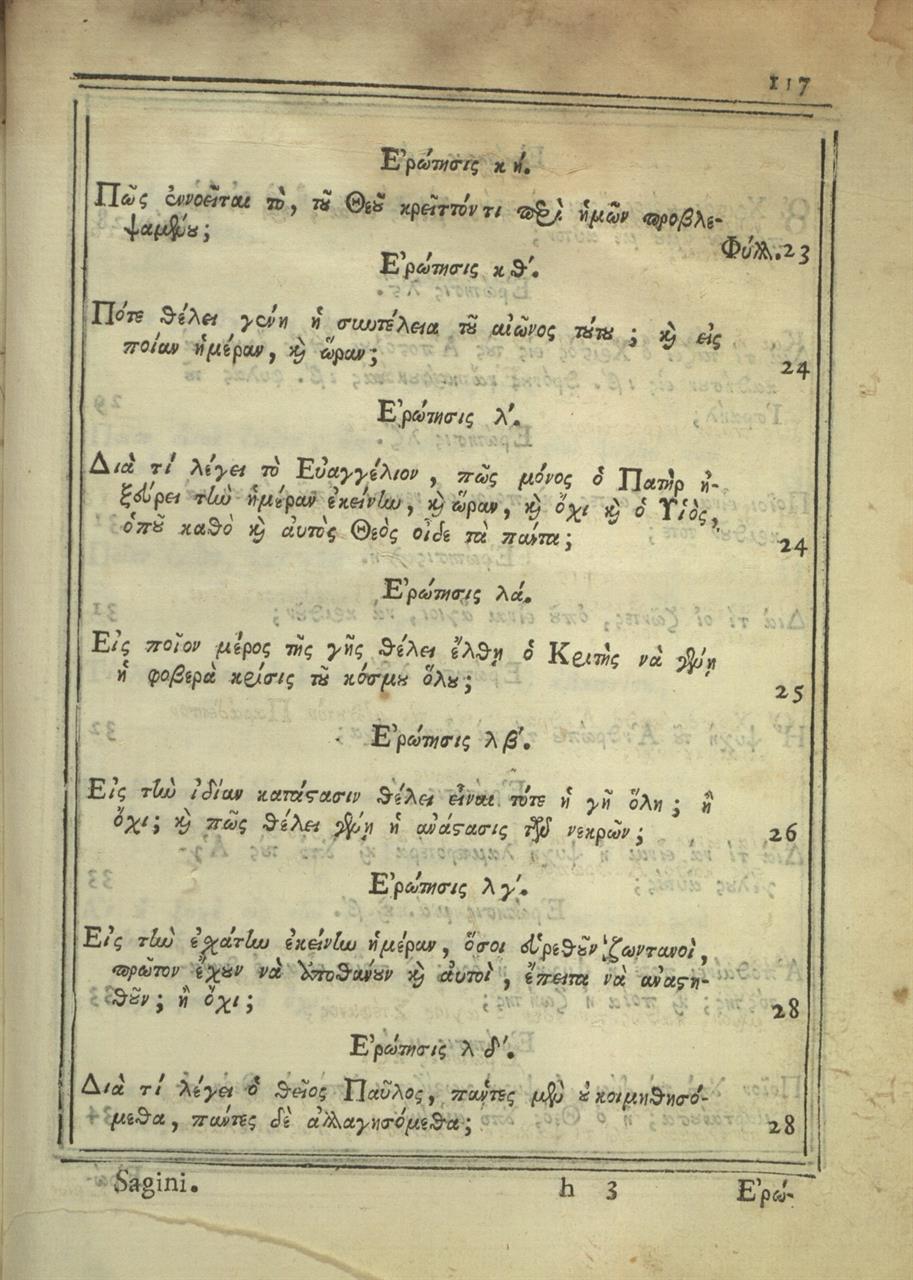 117
Ἐρώτησις κή.
Πῶς ἐννοεῖται τὸ, τοῦ Θεοῦ κρεῖττόν τι περὶ ἡμῶν προβλε-
ψαμένου;
Φύλλ.23
Ἐρώτησις κθ΄.
Πότε θέλει γένη ἡ συντέλεια τοῦ αἰῶνος τούτου; καὶ εἰς
ποίαν ἡμέραν, καὶ ὥραν;
24
Ἐρώτησις λ΄.
Διὰ τί λέγει τὸ Εὐαγγέλιον, πῶς μόνος ὁ Πατὴρ ἠ-
ξεύρει τὴν ἡμέραν ἐκείνην, καὶ ὥραν, καὶ ὄχι καὶ ὁ Υἱὸς,
ὁποῦ καθὸ καὶ ἀυτὸς Θεὸς οἶδε τὰ πάντα;
24
Ἐρώτησις λά.
Εἰς ποῖον μέρος τῆς γῆς θέλει ἔλθῃ ὁ Κριτὴς νὰ γένῃ
ἡ φοβερὰ κρίσις τοῦ κόσμου ὅλου;
25
Ἐρώτησις λβ΄.
Εἰς τὴν ἰδίαν κατάστασιν θέλει εἶναι τότε ἡ γῆ ὅλη; ἢ
ὄχι; καὶ πῶς θέλει γένῃ ἡ ἀνάστασις τῶν νεκρῶν;
26
Ἐρώτησις λγ΄.
Εἰς τὴν ἐχάτην ἐκείνην ἡμέραν, ὅσοι εὑρεθοῦν ζωντανοὶ,
πρῶτον ἔχουν νὰ ἀποθάνουν καὶ ἀυτοὶ, ἔπειτα νὰ ἀναστη-
θοῦν; ἢ ὄχι;
28
Ἐρώτησις λδ΄.
Διὰ τί λέγει ὁ θεῖος Παῦλος, πάντες μὲν οὐ κοιμηθησό-
μεθα, πάντες δὲ ἀλλαγησόμεθα;
28
Sagini.
h 3
Ἐρώ-